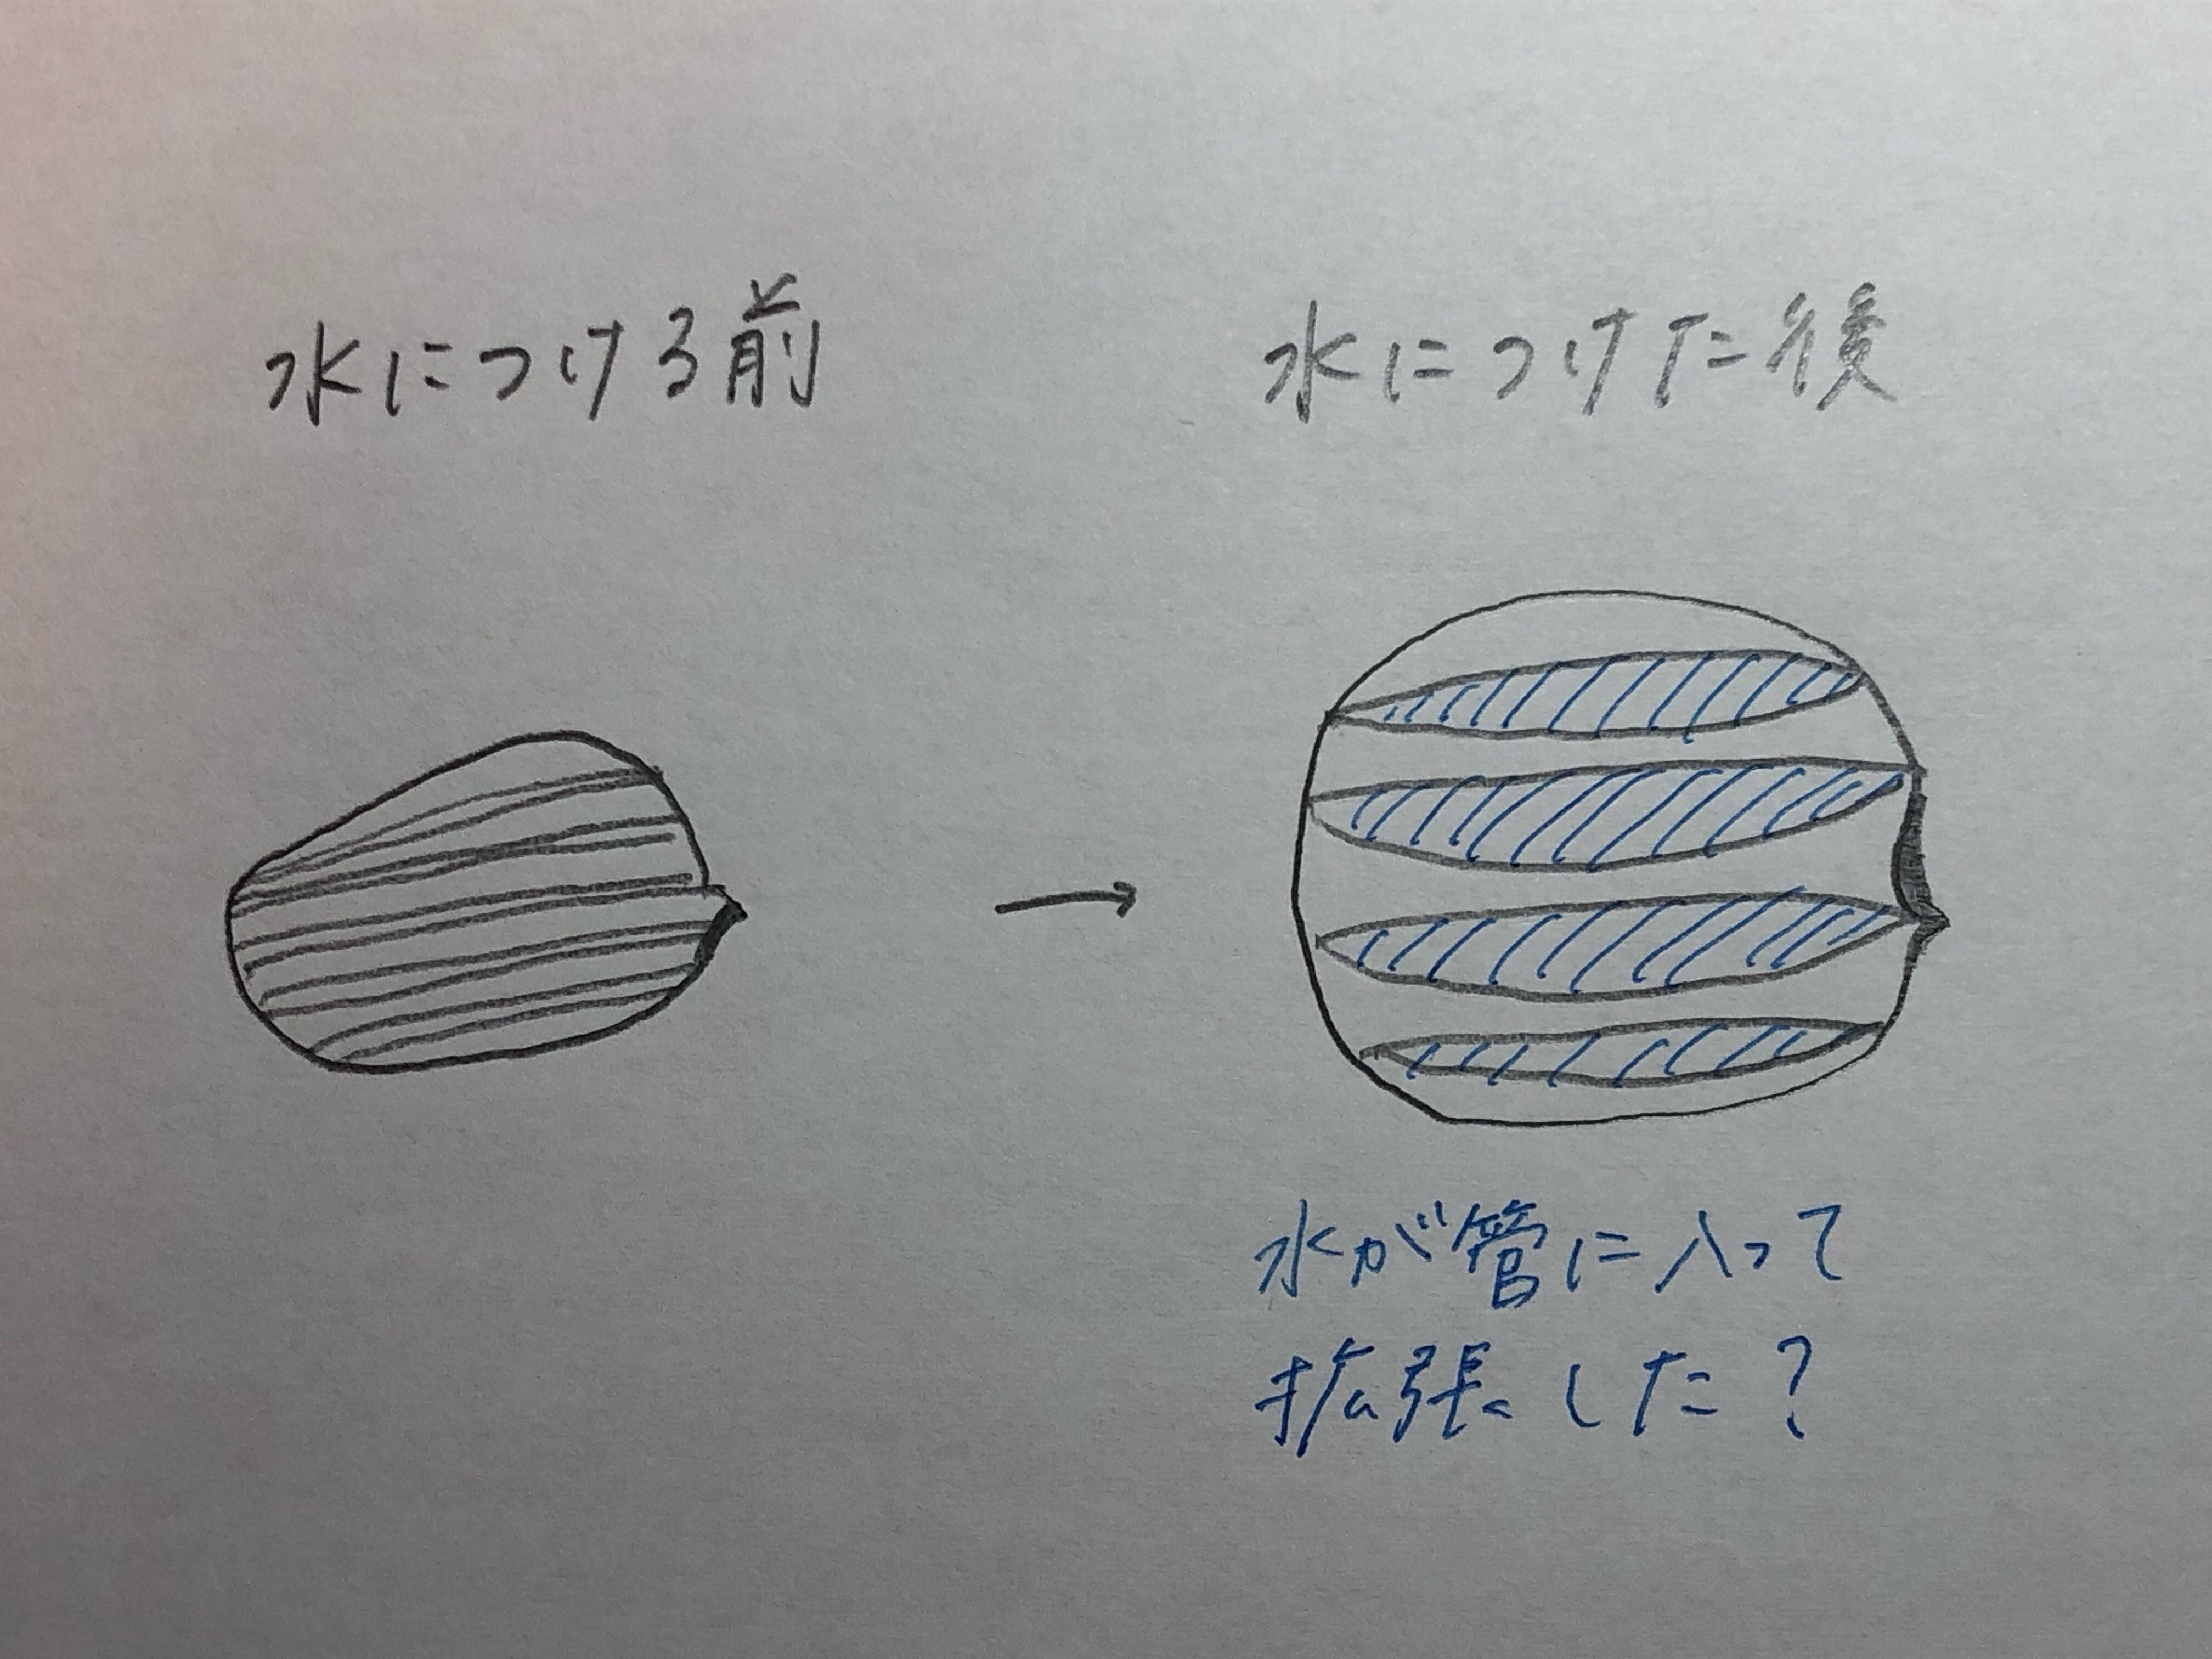 水につける前
水につけた後
水が管に入って
拡張した?